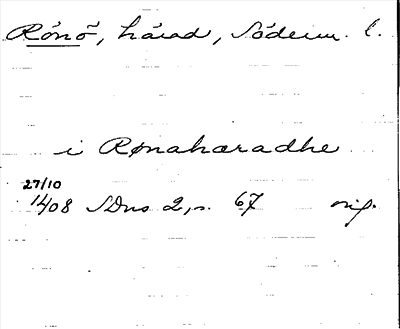 Rönö, härad, Söderm. l.
i Rønahæradhe
27/10
1408 SDns 2, s. 67 orig.